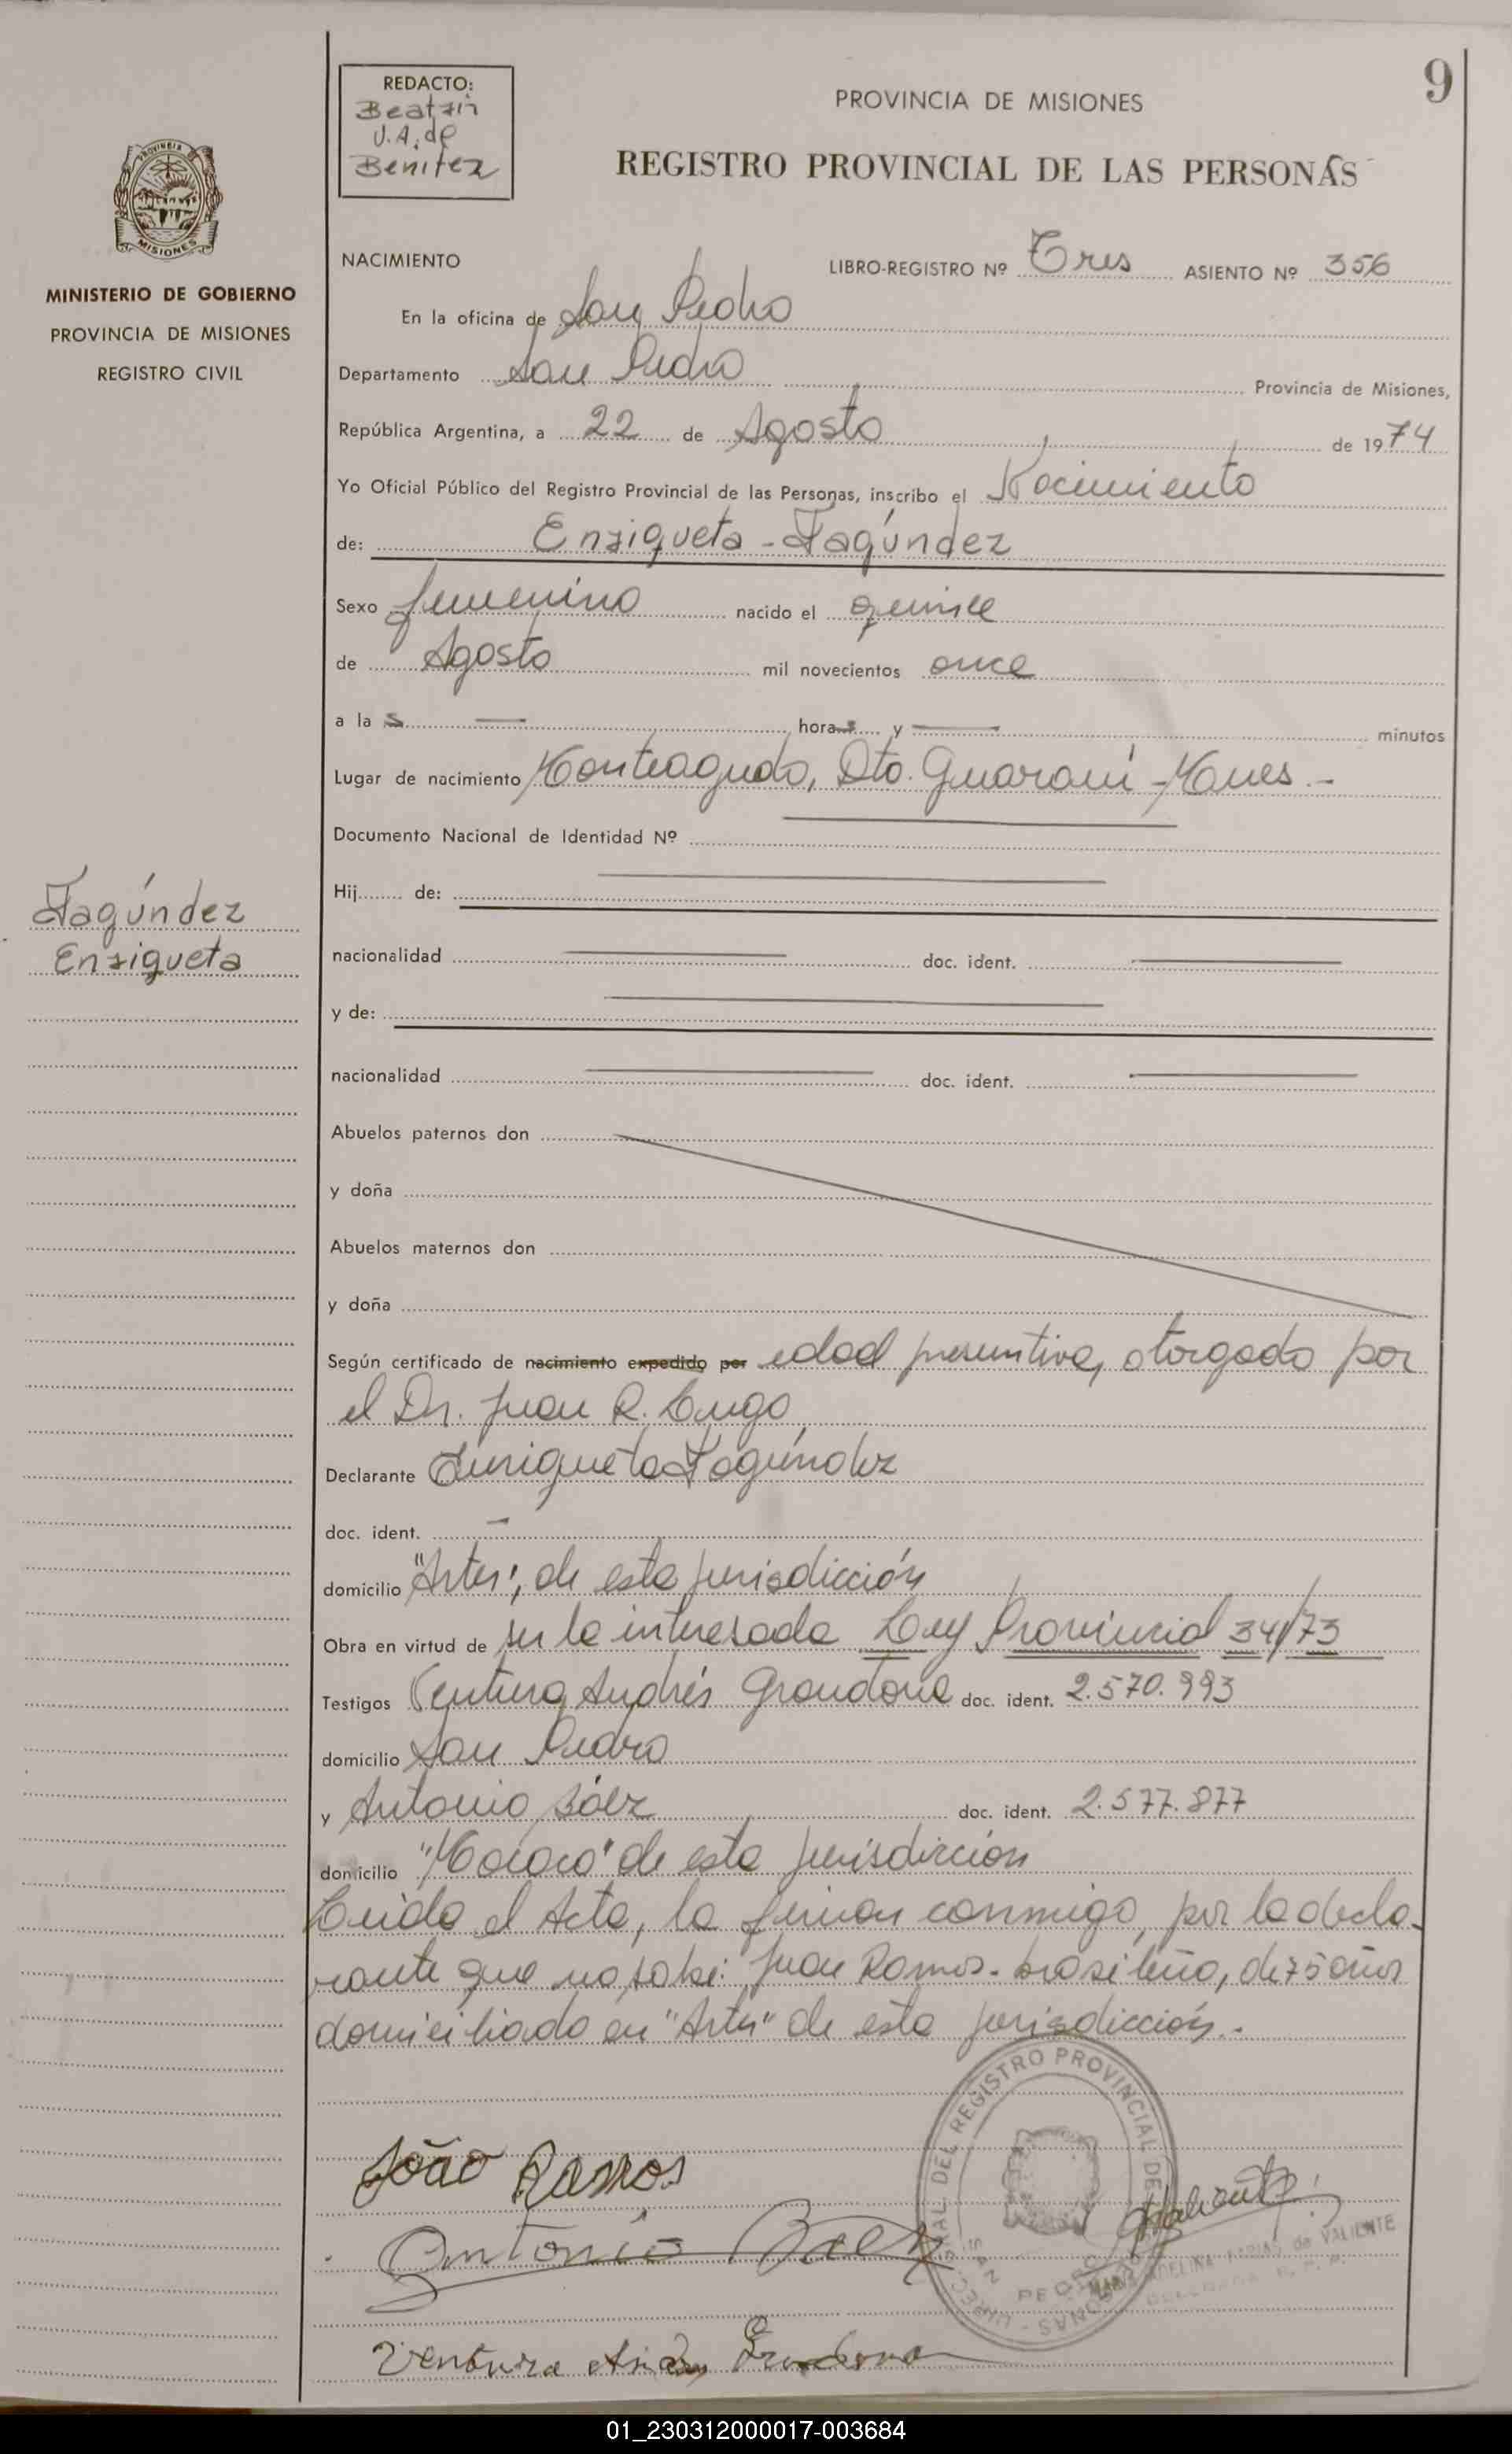 9
REDACTO:
Beatriz
V.A. de
Benitez
PROVINCIA DE MISIONES
REGISTRO PROVINCIAL DE LAS PERSONAS
PROVINCIA
MISIONES
MINISTERIO DE GOBIERNO
PROVINCIA DE MISIONES
REGISTRO CIVIL
NACIMIENTO LIBRO-REGISTRO Nº Tres ASIENTO Nº 356
En la oficina de San Pedro
Departamento San Pedro Provincia de Misiones,
República Argentina, a 22 de Agosto de 1974
Yo Oficial Público del Registro Provincial de las Personas, inscribo el Nacimiento
de: Enriqueta - Fagúndez
Sexo femenino nacido el quince
de Agosto mil novecientos once
a las — horas y — minutos
Lugar de nacimiento Monteagudo, Dto. Guaraní - Mnes. -
Documento Nacional de Identidad Nº
Hij de:
Fagúndez
Enriqueta
nacionalidad doc. ident.
y de:
nacionalidad doc. ident.
Abuelos paternos don
y doña
Abuelos maternos don
y doña
Según certificado de nacimiento expedido por edad presuntiva, otorgado por
el Dr. Juan R. Lugo
Declarante Enriqueta Fagúndez
doc. ident. —
domicilio de esta jurisdicción
Obra en virtud de ser la interesada Ley Provincial 34/73
Testigos Ventura Andrés Grandona doc. ident. 2.570.993
domicilio San Pedro
y Antonio Báez doc. ident. 2.577.877
domicilio de esta jurisdicción
Leida el Acta, la firman conmigo, por la decla-
rante que no sabe: Juan Ramos - brasileño, de 75 años
domiciliado en de esta jurisdicción. -
João Ramos
Antonio Baez
DIRECC. GRAL. DEL REGISTRO PROVINCIAL DE PERSONAS
SAN PEDRO
FARIAS de VALIENTE
Ventura Grandona
01_230312000017-003684